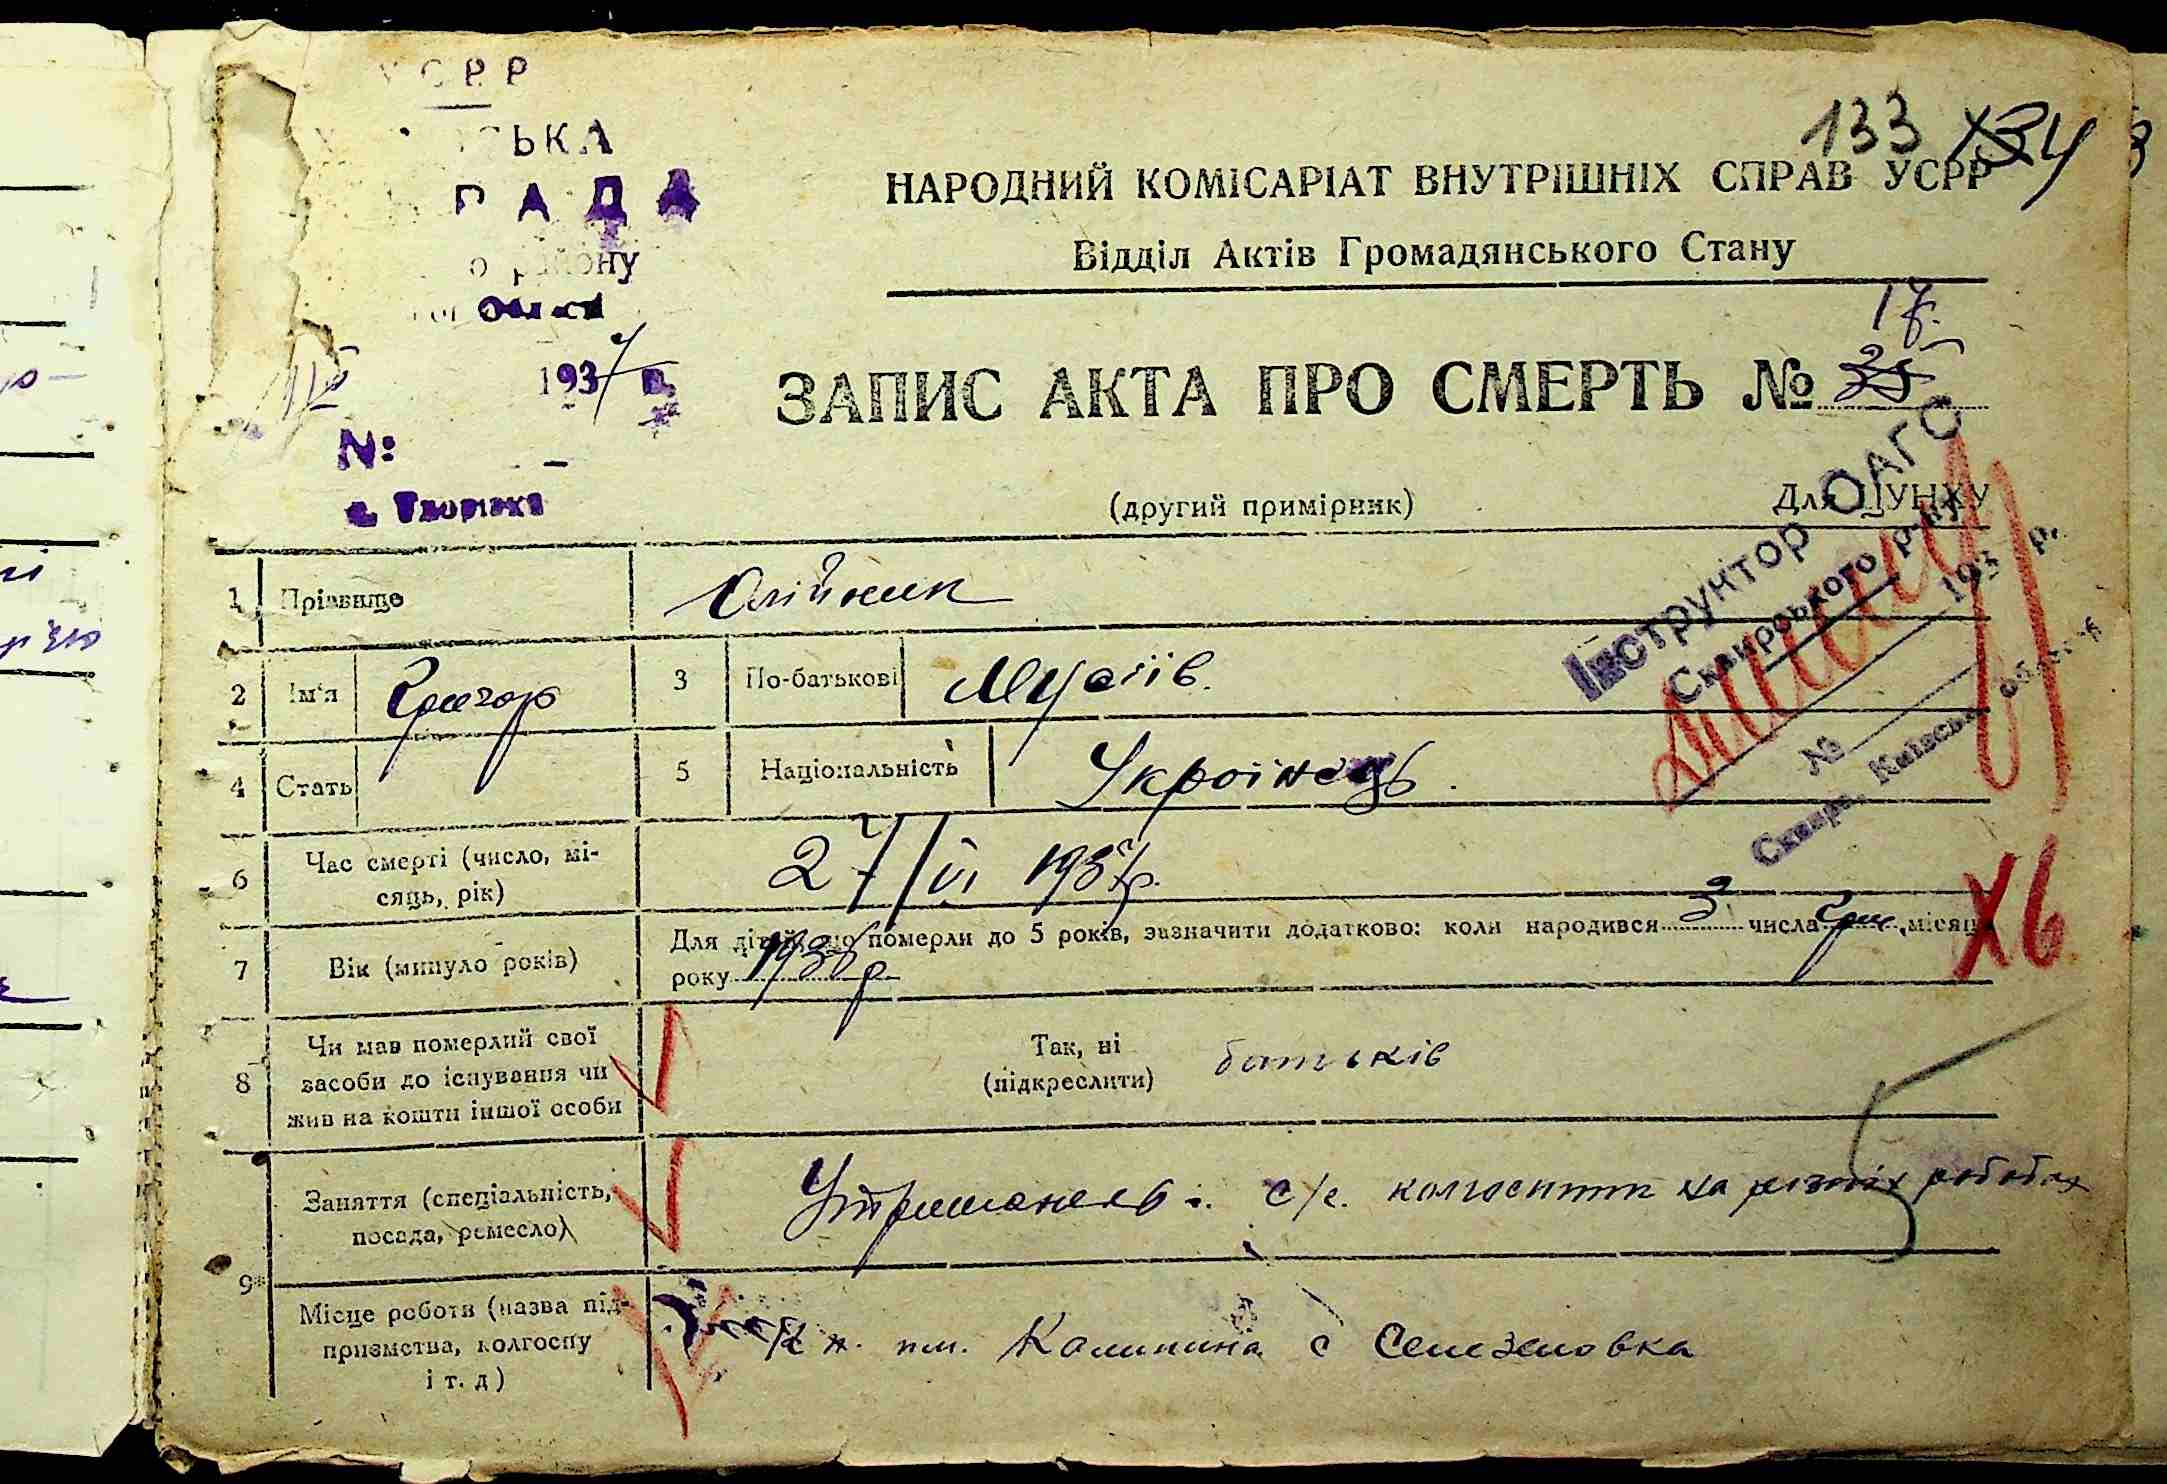 УСРР
ЬКА
РАДА
о району
ої Области
133 134
НАРОДНИЙ КОМІСАРІАТ ВНУТРІШНІХ СПРАВ УСРР
Відділ Актів Громадянського Стану
17.
1937 р.
ЗАПИС АКТА ПРО СМЕРТЬ № 35
№:
(другий примірник)
Для ЦУНХУ
Інструктор ОАГС
Сквирського р-ну
193 р.
№
Сквира, Київської області
1 Прізвище Олійник
2 Ім'я Григор 3 По-батькові Мусіїв.
4 Стать 5 Національність Українець.
6 Час смерті (число, мі-
сяць, рік) 27/VI 1937р.
7 Вік (минуло років) Для дітей, що померли до 5 років, зазначити додатково: коли народився 3 числа Гру. місяця
року 1936р.
Х6
8 Чи мав померлий свої
засоби до існування чи
жив на кошти іншої особи
Так, ні
(підкреслити) батьків
9 Заняття (спеціальність,
посада, ремесло) Утриманець. с/г. колгоспник на різних роботах
Місце роботи (назва під-
приємства, колгоспу
і т. д) им. Калинина с Селезеновка